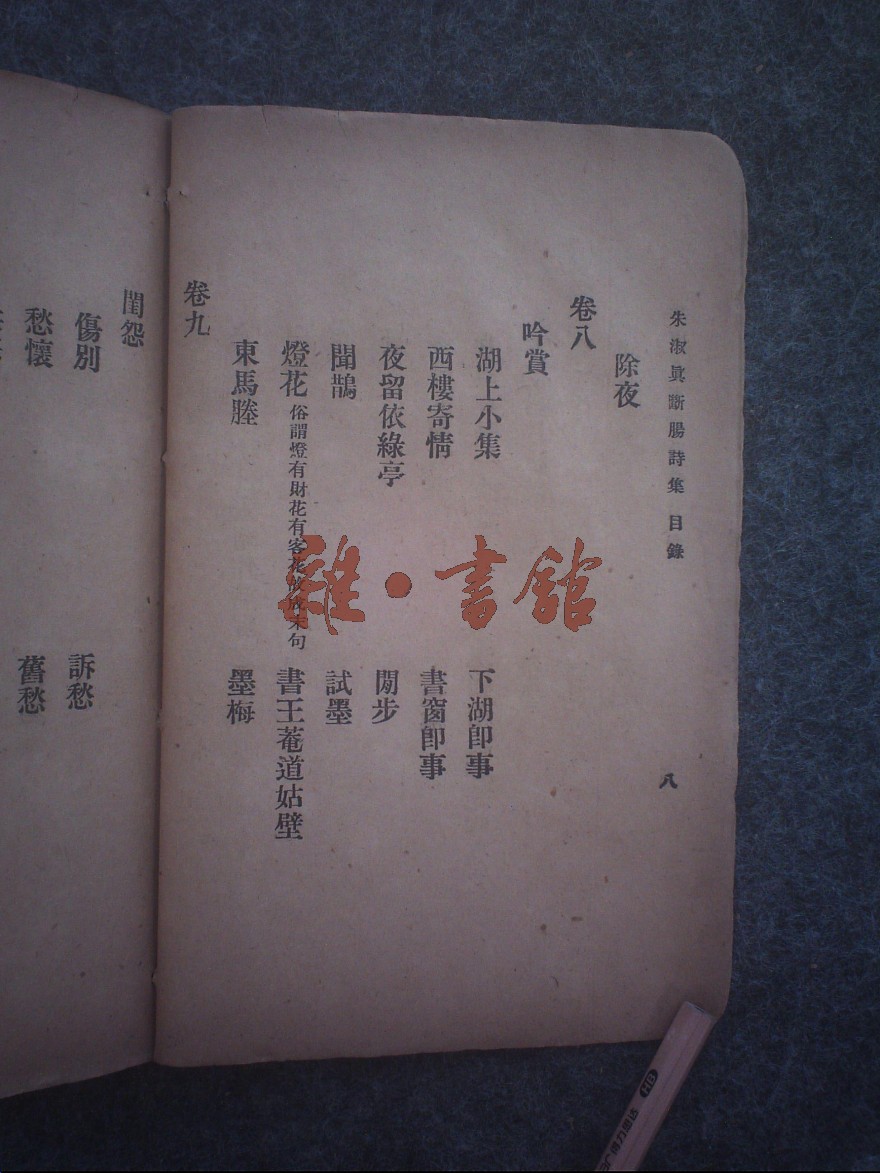 朱淑眞斷腸詩集 目錄 八
除夜
卷八
吟賞
湖上小集 下湖卽事
西樓寄情 書窗卽事
夜留依綠亭 閒步
聞鵲 試墨
燈花 俗謂燈有財花有客 末句 書王菴道姑壁
東馬塍 墨梅
卷九
閨怨
傷別 訴愁
愁懷 舊愁
雜·書館
HB